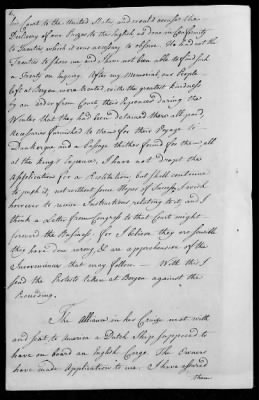 his Court to the United States and would excuse the
Delivery of our Prizes to the English as done in Conformity
to Treaties which it was necessary to observe. He had not the
Treaties to shew me, and I have not been able to find such
a Treaty on enquiry. After my Memorial, our People
left at Bergen were treated with the greatest kindness
by an order from Court, their Expences during the
Winter that they had been detained there all paid,
Necessaries furnished to them for their Voyage to
Dunkerque and a Passage thither found for them, all
at the King's Expence. I have not dropt the
Application for a Restitution, but shall continue
to push it, not without some Hopes of Success, I wish
however to receive Instructions relating to it, and I
think a Letter from Congress to that Court might
forward the Business. for I believe they are sensible
they have done wrong, & are apprehensive of the
Inconveniences that may follow. — With this I
send the Protests taken at Bergen against the
Proceeding.
The Alliance in her Cruize met with
and sent to America a Dutch Ship supposed to
have on board an English Cargo. The Owners
have made Application to me. I have assured
them